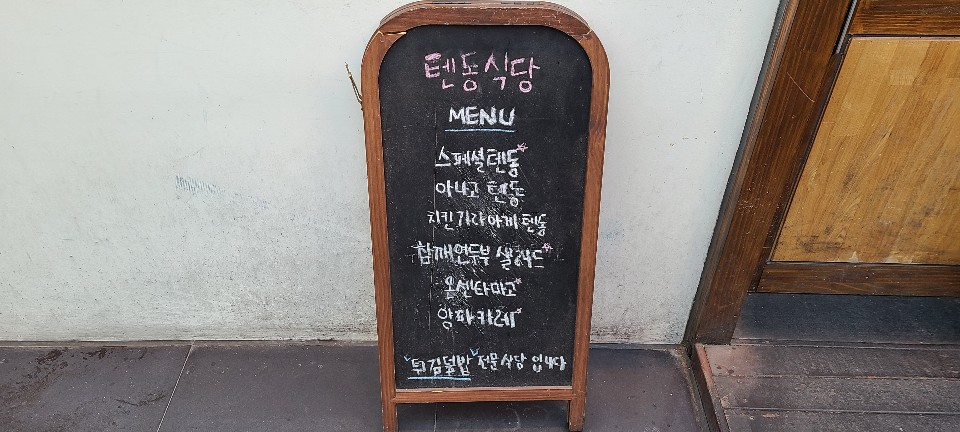 텐동식당
MENU
스페셜텐동
아나고 텐동
치킨가라아게텐동
참깨연두부 샐러드
온센타마고
양파카레
"튀김덮밥" 전문식당 입니다